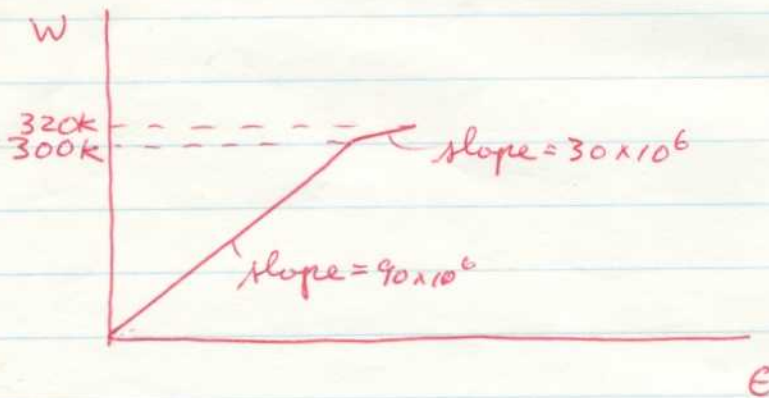 W
320K
300K
slope = 30 x 10⁶
slope = 90 x 10⁶
ϵ